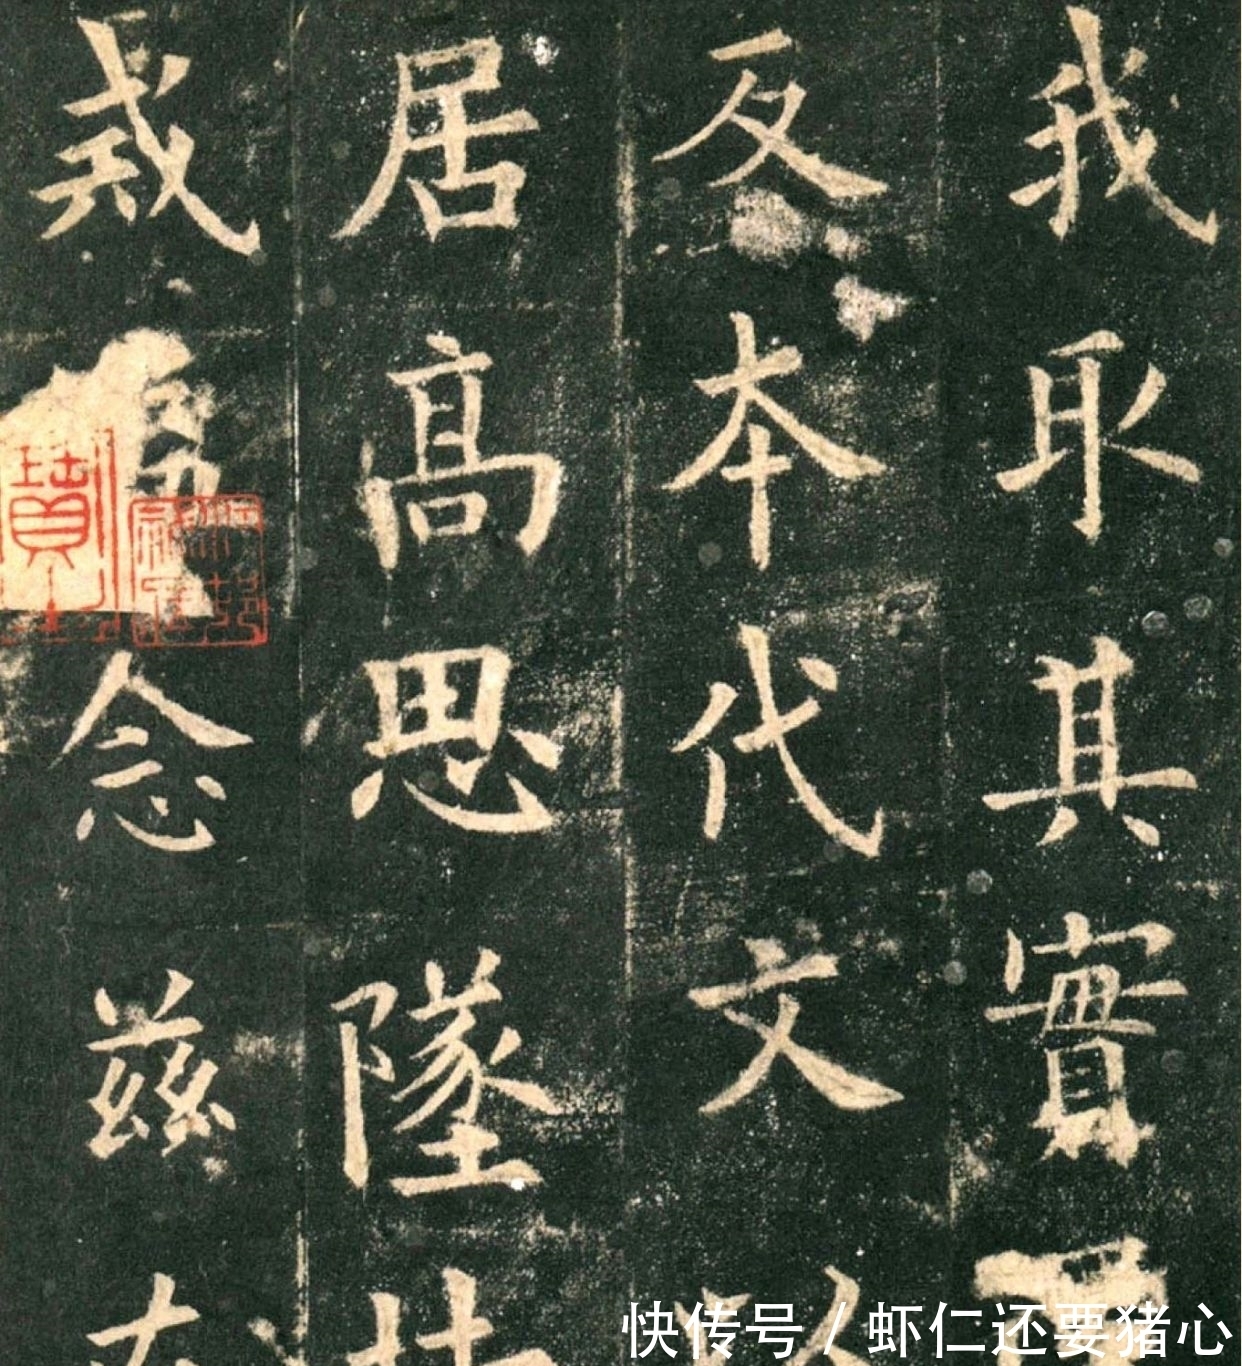 我取其實
反本代文
居高思墜
戒念茲
快传号 / 虾仁还要猪心